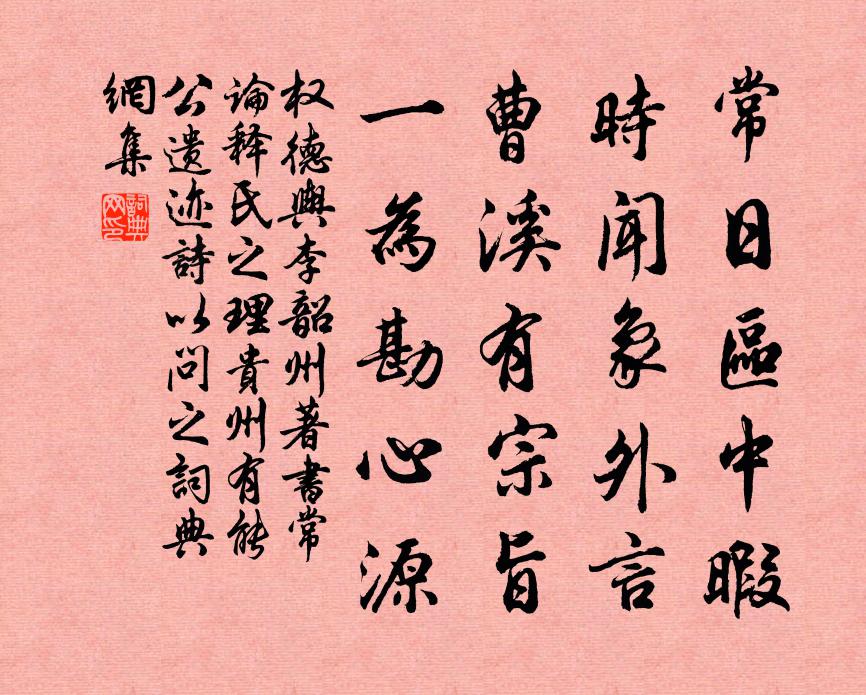 常日區中暇
時聞象外言
曹溪有宗旨
一為勘心源
权德輿李韶州著書常
論释氏之理貴州有能
公遗迹詩以问之詞典
網集
詞典
网印